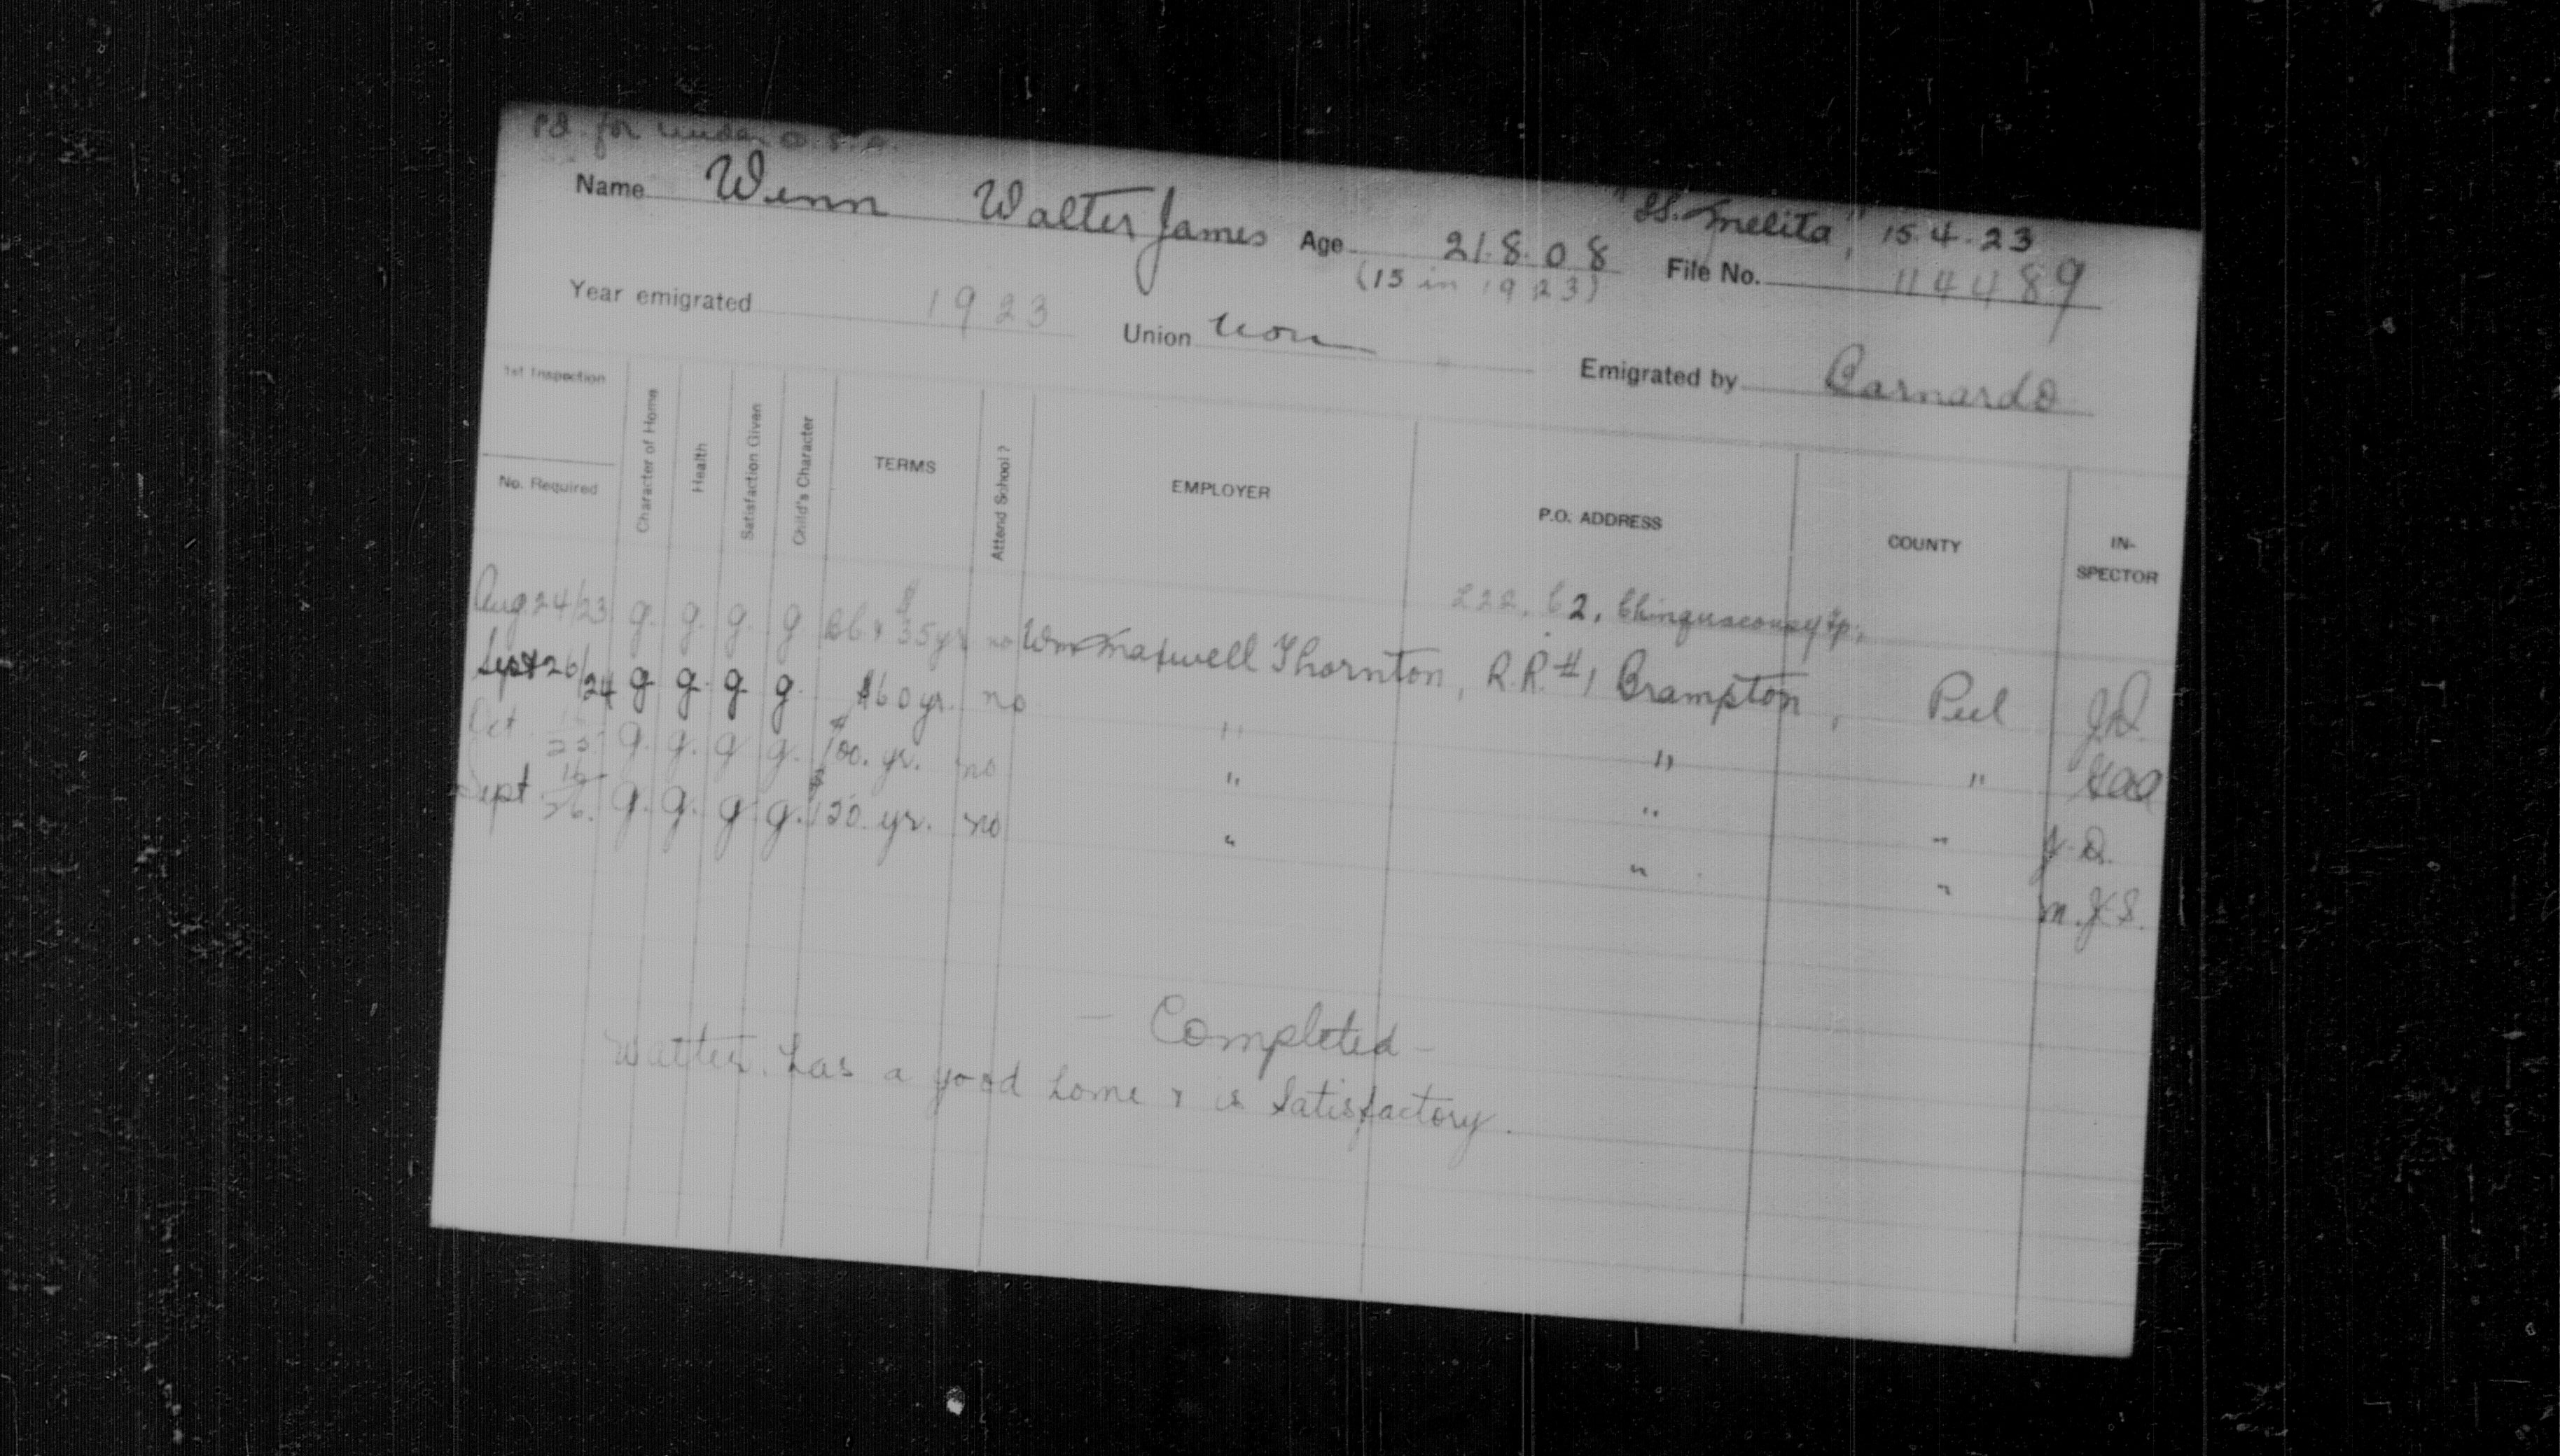 Pd. for under O.S.A.
"SS. Melita", 15.4.23
Name Wenn Walter James Age 21.8.08 File No. 114489
(15 in 1923)
Year emigrated 1923 Union non Emigrated by Barnardo
1st Inspection
No. Required Character of Home Health Satisfaction Given Child's Character TERMS Attend School? EMPLOYER P.O. ADDRESS COUNTY IN-SPECTOR
L22, C2, Chinguacousy Tp.,
Aug 24/23 g. g. g. g $35 yr no Wm Maxwell Thornton, R.R. #1 Brampton, Peel
Sept 26/24 g g. g g. $60 yr. no " " "
Oct 25 g. g. g g. $100. yr. no " " " J.D.
Sept 16/26. g. g. g g. $120. yr. no " " " M.J.S.
- Completed -
Walter has a good home & is satisfactory.